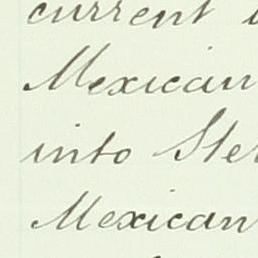 current
Mexican
into Ster
Mexican